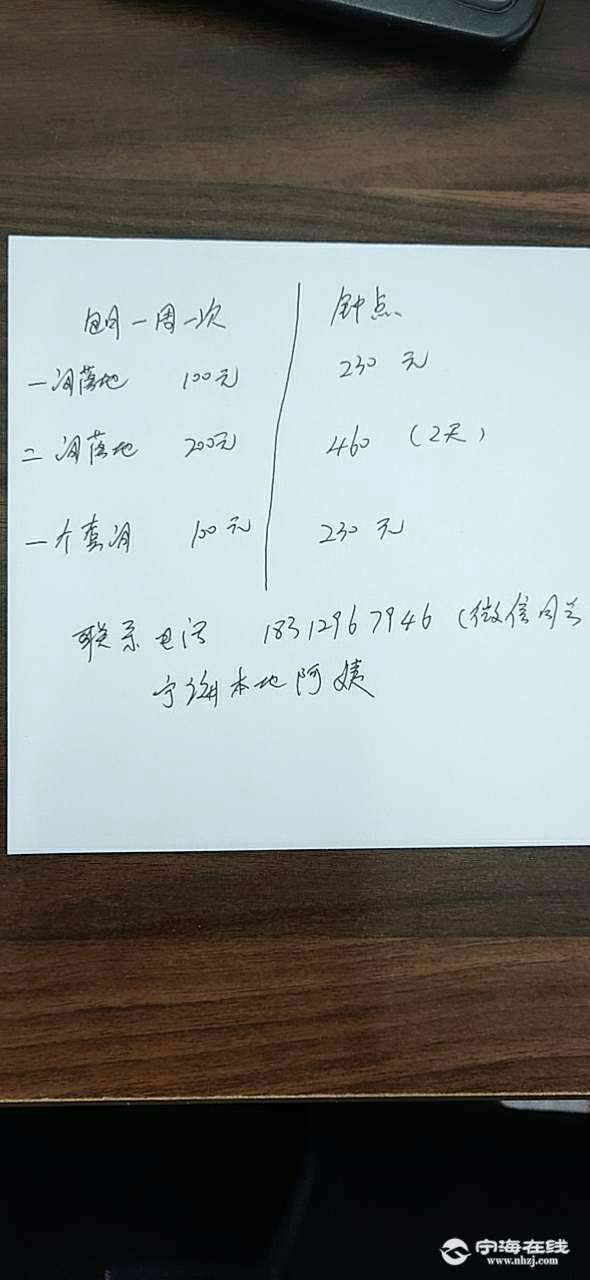 包月一周一次 钟点
一间落地 100元 230元
二间落地 200元 460 (2天)
一个套间 100元 230元
联系电话 18312967946 (微信同号
宁海本地阿姨
宁海在线
www.nhzj.com